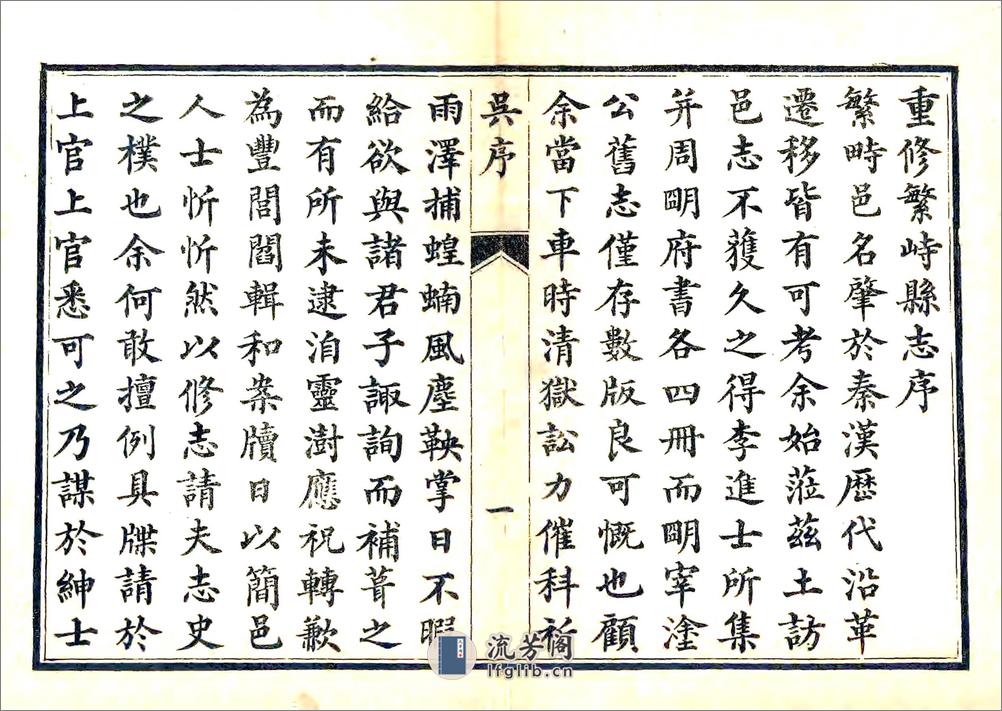 重修繁峙縣志序
繁畤邑名肇於秦漢歷代沿革
遷移皆有可考余始蒞茲土訪
邑志不蒦久之得李進士所集
并周明府書各四冊而明宰塗
公舊志僅存數版良可慨也顧
余當下車時清獄訟力催科祈
吳序
一
雨澤捕蝗蝻風塵鞅掌日不暇
給欲與諸君子諏詢而補葺之
而有所未逮洎靈澍應祝轉歉
為豐閭閻輯和案牘日以簡邑
人士忻忻然以修志請夫志史
之樸也余何敢擅例具牒請於
上官上官悉可之乃謀於紳士
流芳阁
lfglib.cn